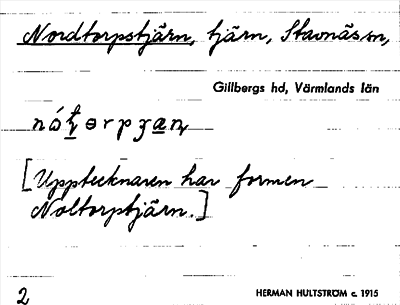 Nordtorpstjärn, tjärn, Stavnäs sn,
Gillbergs hd, Värmlands län
[Upptecknaren har formen
Noltorpstjärn.]
2 HERMAN HULTSTRÖM c. 1915